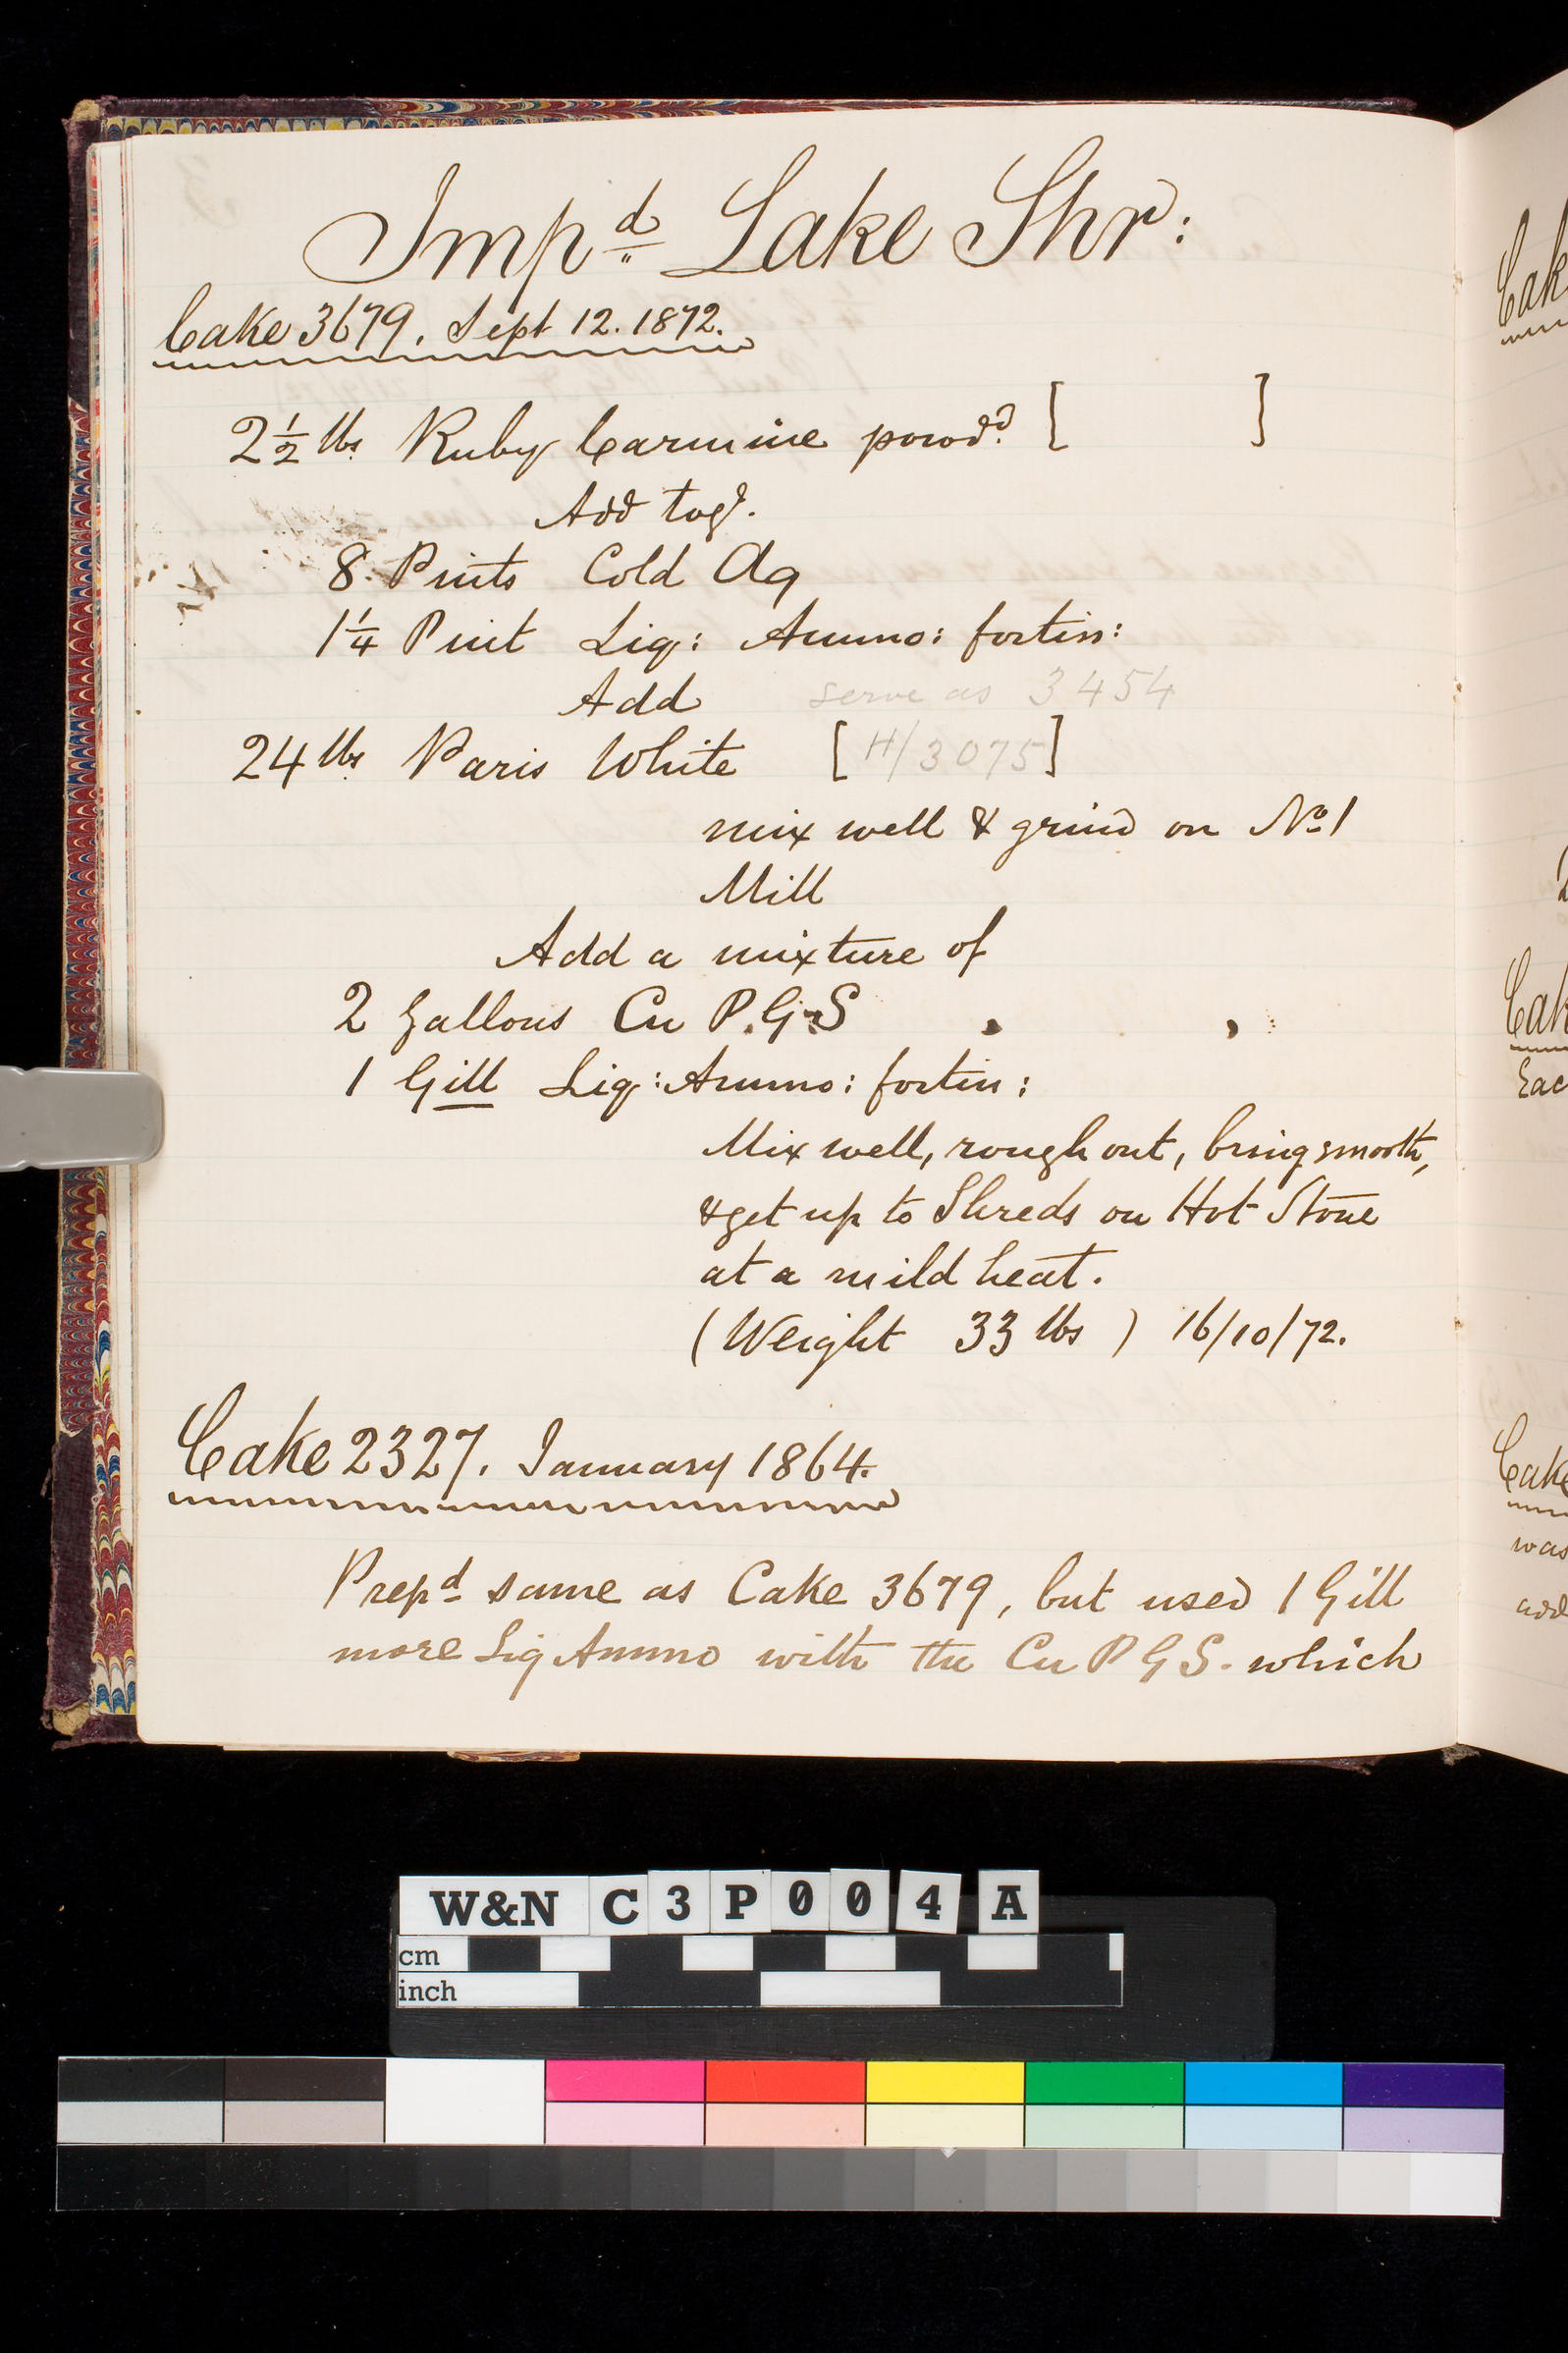 Impd Lake Shr:
Cake 3679. Sept 12. 1872.
2½ lbs Ruby Carmine powdd [ ]
Add togr.
8. Pints Cold Aq
1¼ Pint Liq: Ammo: fortiss:
Add serve as 3454
24 lbs Paris White [H/3075]
mix well & grind on No 1
Mill
Add a mixture of
2 Gallons Cu P.G.S
1 Gill Liq: Ammo: fortiss:
Mix well, rough out, bring smooth,
& get up to Shreds on Hot Stone
at a mild heat.
(Weight 33 lbs ) 16/10/72.
Cake 2327. January 1864.
Prepd same as Cake 3679, but used 1 Gill
more Liq Ammo with the Cu P G S. which
Cak
Cak
Eac
Cake
was
add
W&N C3P004A
cm
inch